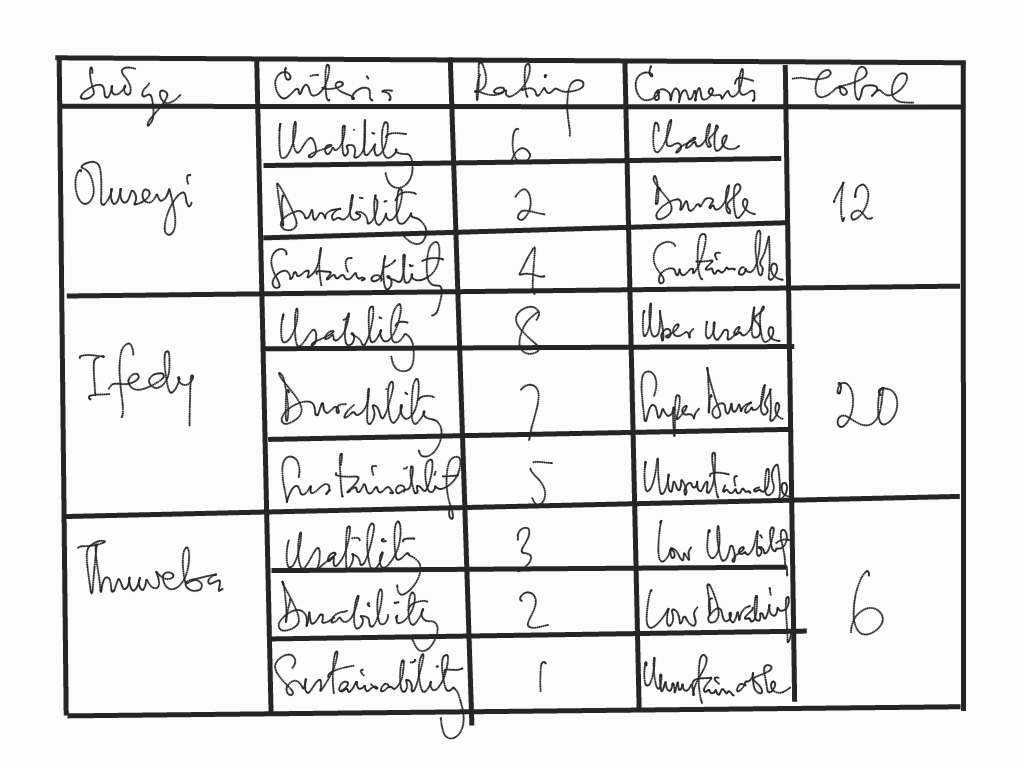 Judge Criteria Rating Comments Total
Usability 6 Usable
Oluseyi Durability 2 Durable 12
Sustainability 4 Sustainable
Usability 8 Uber usable
Ifedy Durability 7 Super Durable 20
Sustainability 5 Unsustainable
Thuweba Usability 3 Low Usability
Durability 2 Low Durability 6
Sustainability 1 Unsustainable